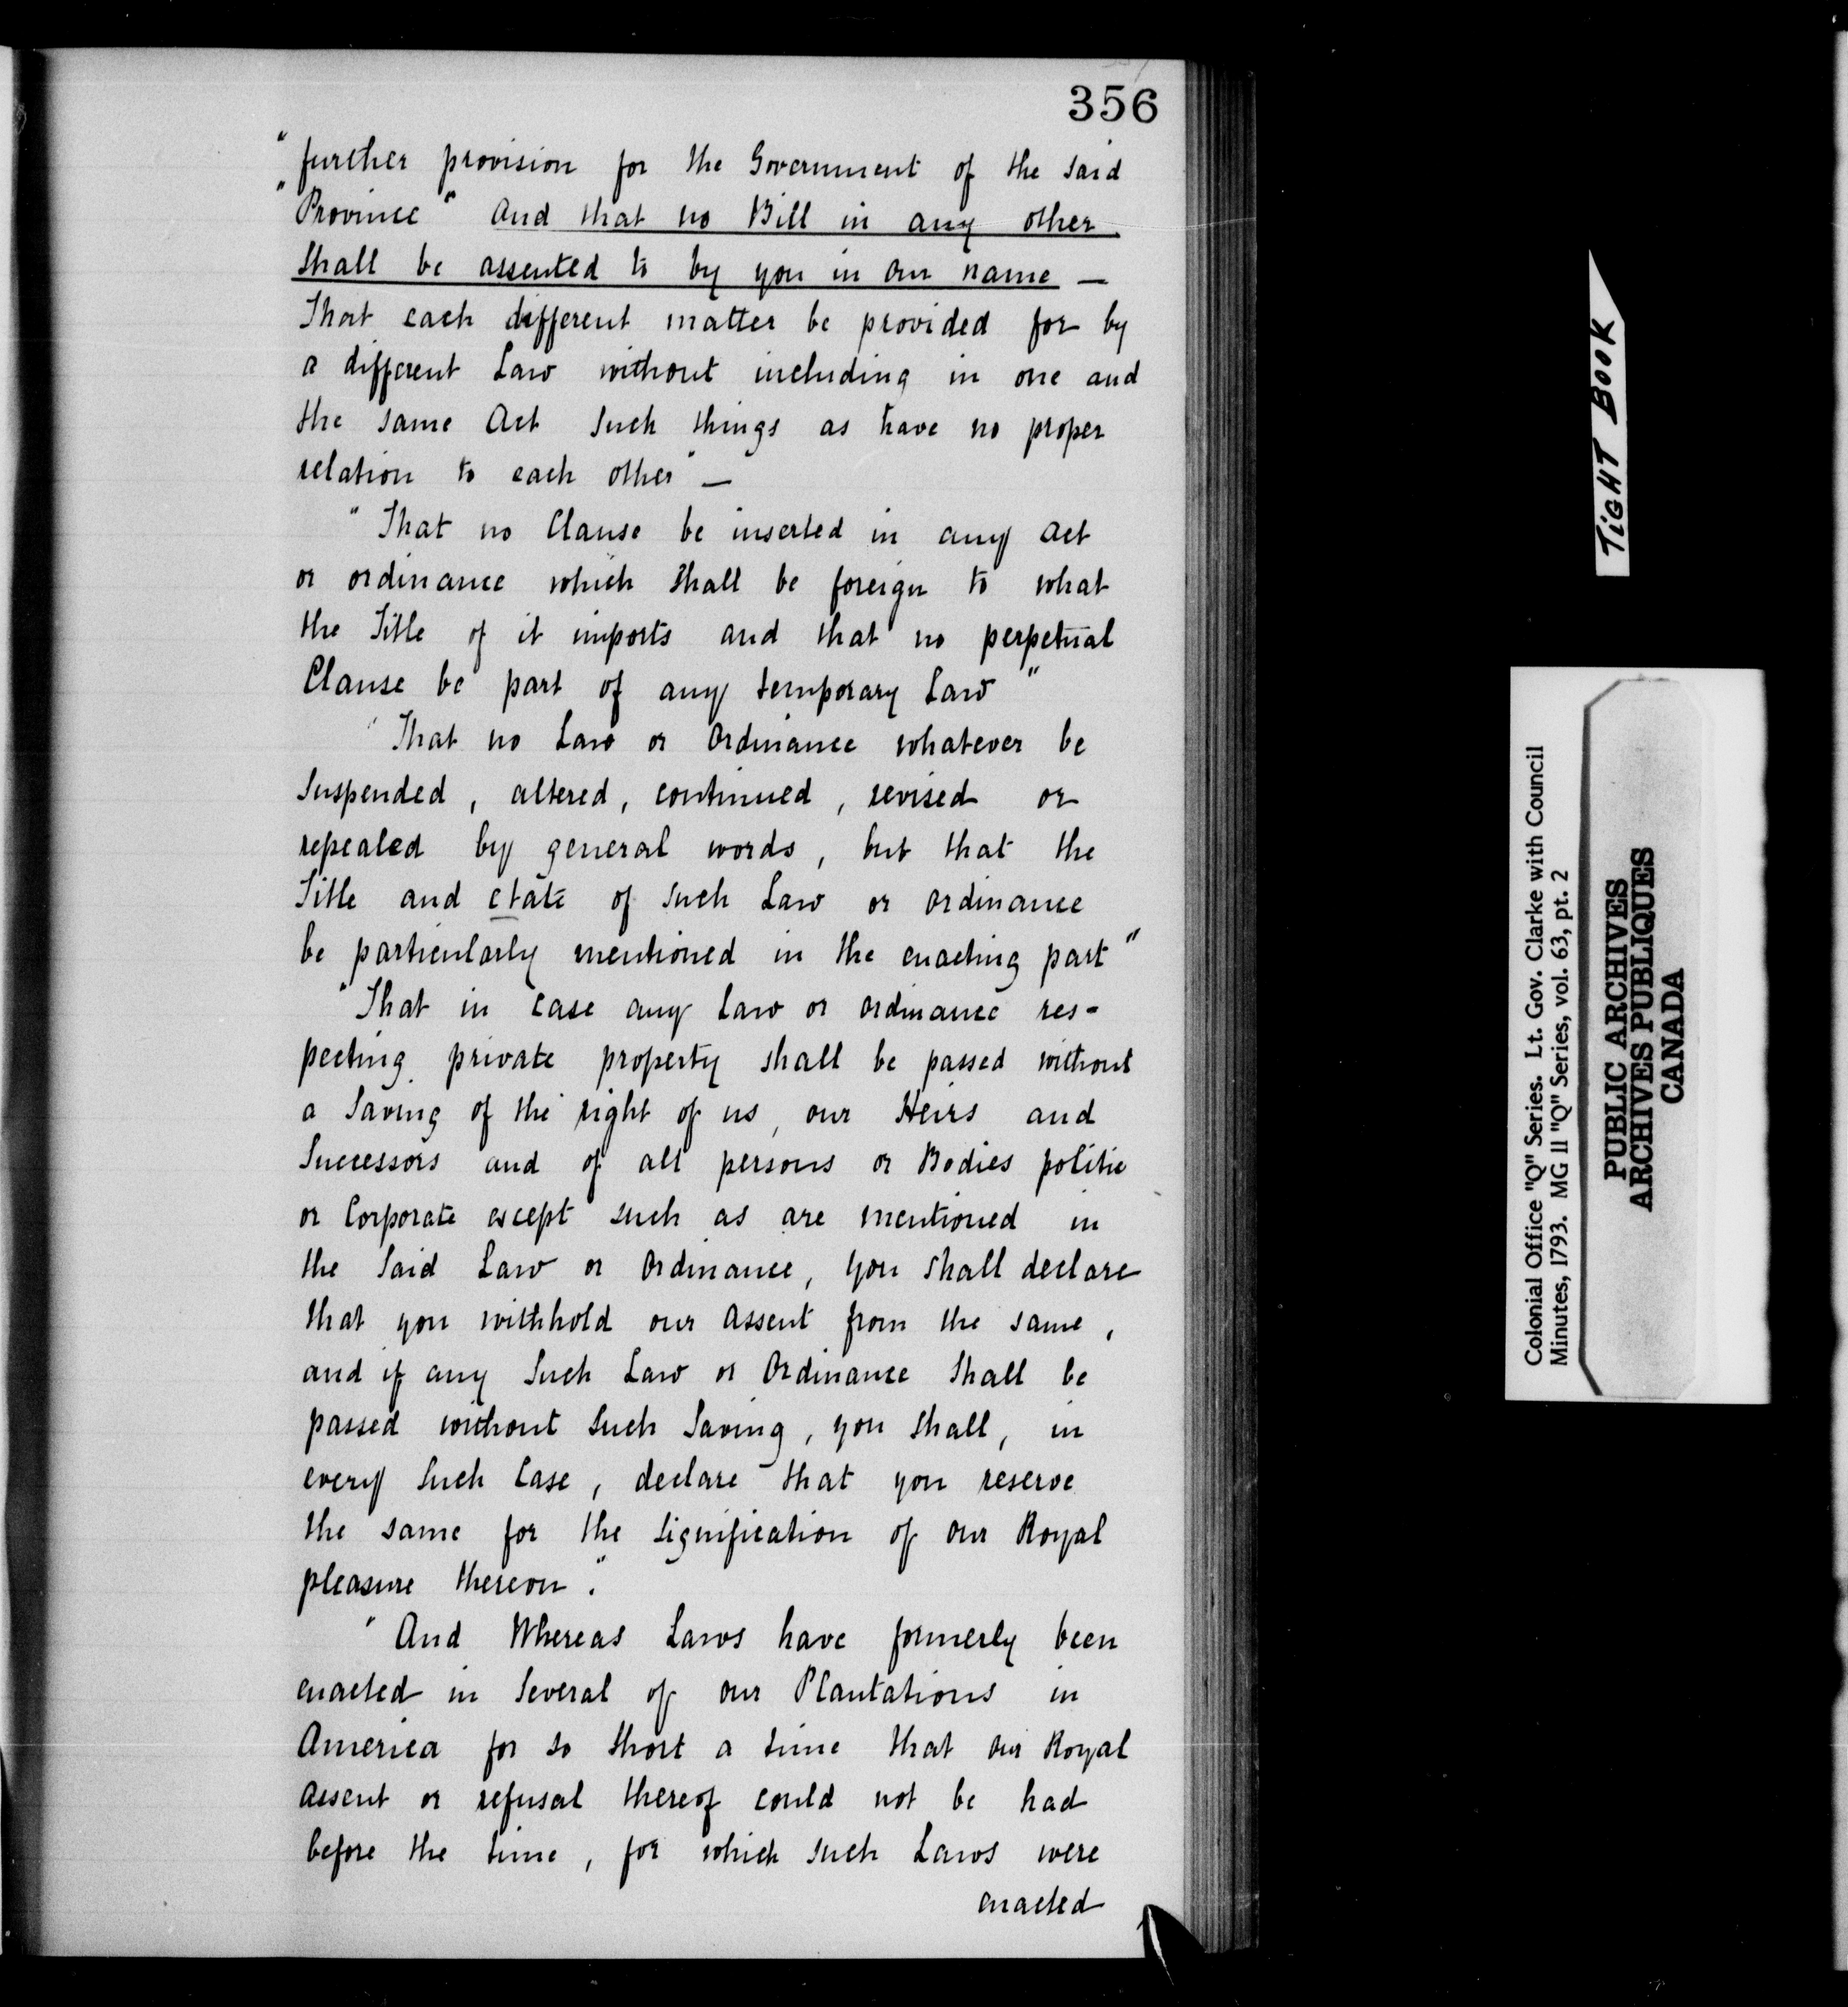 356
"further provision for the Government of the said
"Province" And that no Bill in any other
shall be assented to by you in our name —
That each different matter be provided for by
a different Law without including in one and
the same Act such things as have no proper
relation to each other" —
"That no Clause be inserted in any Act
or ordinance which shall be foreign to what
the Title of it imports and that no perpetual
Clause be part of any temporary Law"
"That no Law or Ordinance whatever be
suspended, altered, continued, revised or
repealed by general words, but that the
Title and date of such Law or ordinance
be particularly mentioned in the enacting part"
"That in case any Law or ordinance res-
pecting private property shall be passed without
a Saving of the right of us, our Heirs and
Successors and of all persons or Bodies politic
or Corporate except such as are mentioned in
the said Law or Ordinance, you shall declare
that you withhold our assent from the same,
and if any such Law or Ordinance shall be
passed without such Saving, you shall, in
every such Case, declare that you reserve
the same for the signification of our Royal
pleasure thereon."
"And Whereas Laws have formerly been
enacted in several of our Plantations in
America for so short a time that our Royal
assent or refusal thereof could not be had
before the time, for which such Laws were
enacted
TiGHT BOOK
Colonial Office "Q" Series. Lt. Gov. Clarke with Council
Minutes, 1793. MG 11 "Q" Series, vol. 63, pt. 2
PUBLIC ARCHIVES
ARCHIVES PUBLIQUES
CANADA